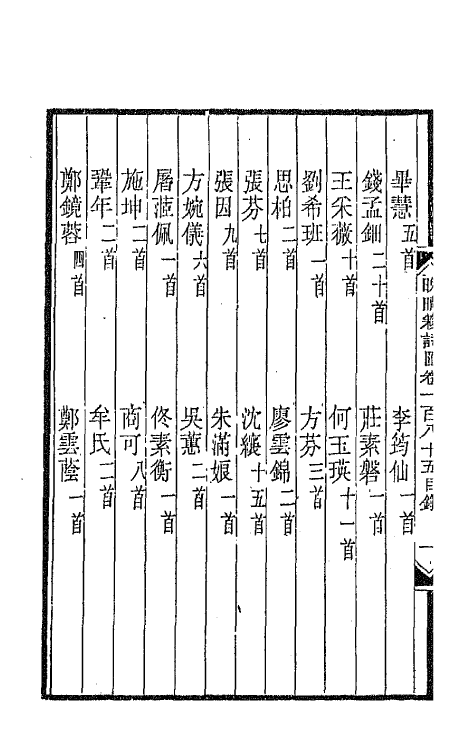 晚晴簃詩匯卷一百八十五目錄 一
畢慧五首 李筠仙一首
錢孟鈿二十首 莊素磐一首
王采薇十首 何玉瑛十一首
劉希班一首 方芬三首
思柏二首 廖雲錦二首
張芬七首 沈纕十五首
張因九首 朱滿娘一首
方婉儀六首 吳蕙二首
屠茝佩一首 佟素衡一首
施坤二首 商可八首
鞏年二首 牟氏二首
鄭鏡蓉四首 鄭雲蔭一首